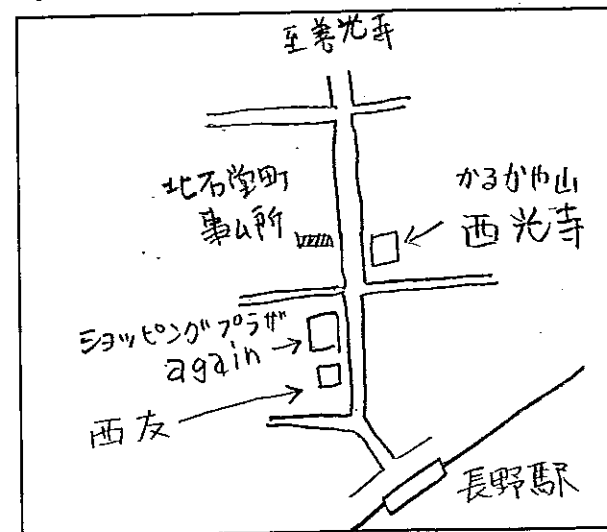 至善光寺
北石堂町
事ム所
かるかや山
西光寺
ショッピングプラザ
again
西友
長野駅